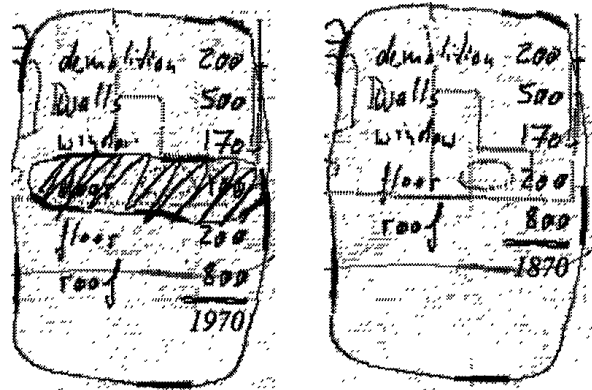 demolition 200
Walls 500
window 170
floor 200
roof 800
1970
demolition 200
Walls 500
window 170
floor 200
roof 800
1870